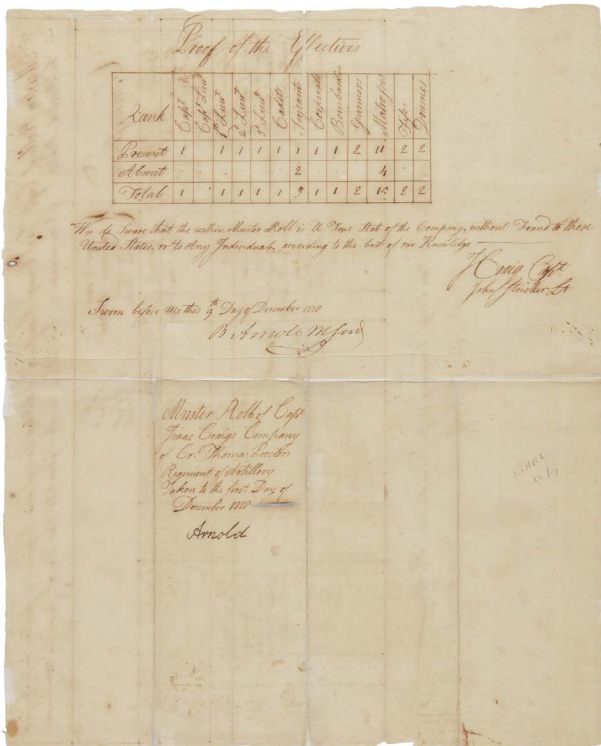 Proof of the Effectives
Rank Capt Capt Lieut 1 Lieut 2 Lieut 3 Lieut Cadet Serjeants Corporals Bombardiers Gunners Matrosses Fifes Drums
Present 1 · 1 1 1 1 1 1 1 2 11 2 2
Absent 2 4
Total 1 · 1 1 1 1 3 1 1 2 15 2 2
We do Swear that the within Muster Roll is A True Stat of the Company, without Fraud to these
United States, or to Any Individual, according to the best of our Knowledge
J Craig Capt
John Stricker Lt
Sworn before Me this 9th Day of December 1778
B Arnold M Genl
Muster Roll of Capt
Isaac Craigs Company
of Col Thomas Proctor
Regiment of Artillery
Taken to the first Day of
December 1778
Arnold